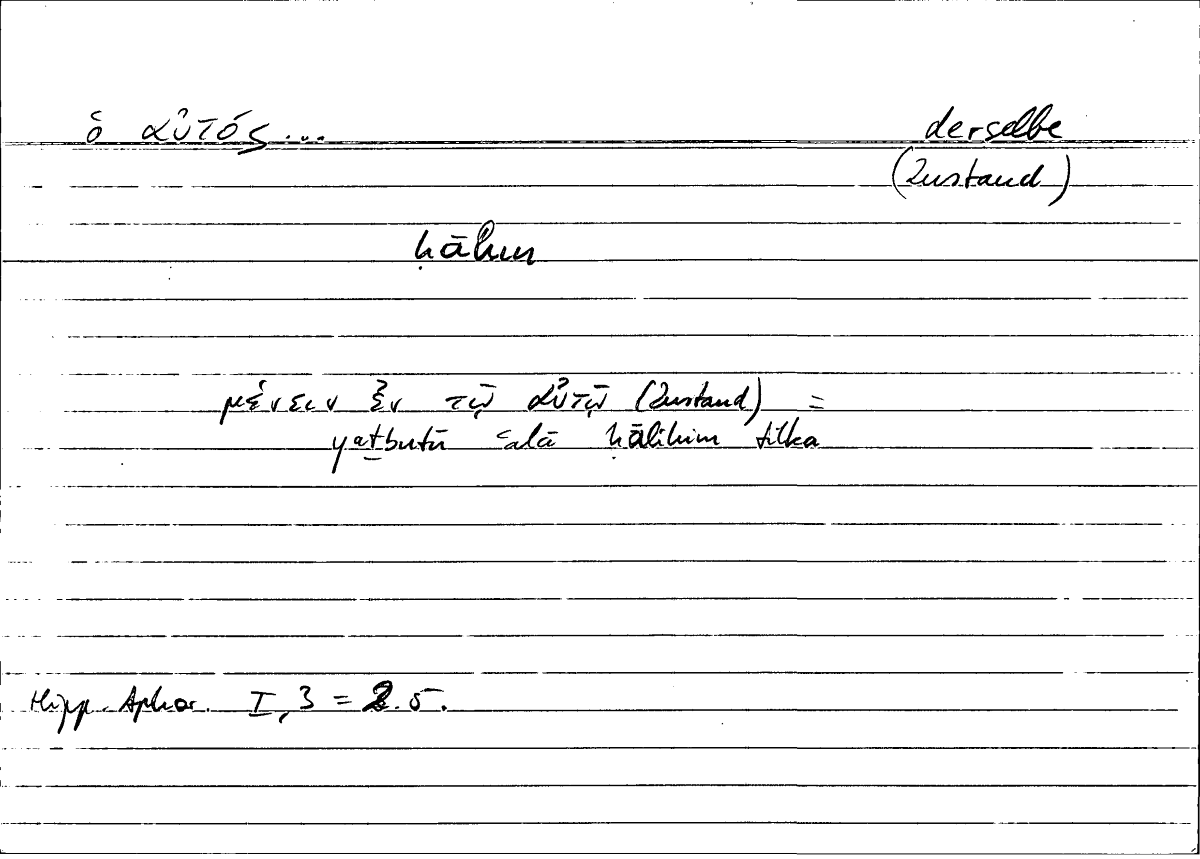 ὁ αὐτός... derselbe
(Zustand)
ḥālun
μένειν ἐν τῷ αὐτῷ (Zustand) =
yaṯbutū ʿalā ḥālihim tilka
Hipp. Aphor. I, 3 = 2.5.